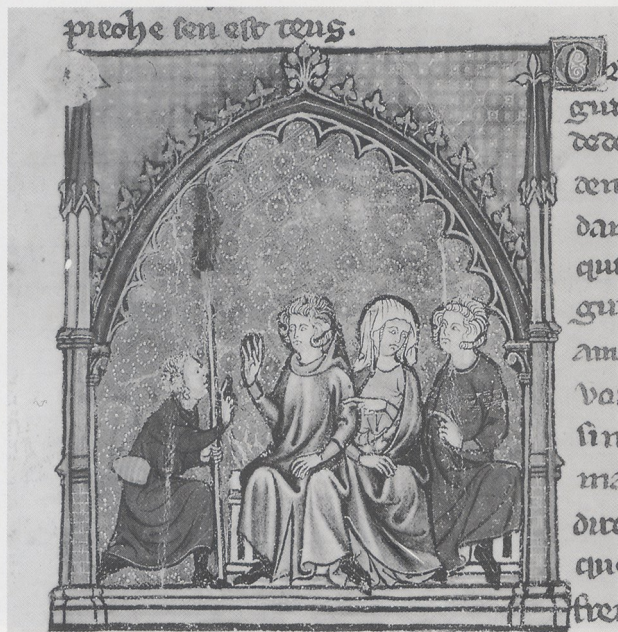 pieche sen est teus.
O
gui
dede
den
dan
qui
gui
am
vor
sin
ma
dire
que
frer